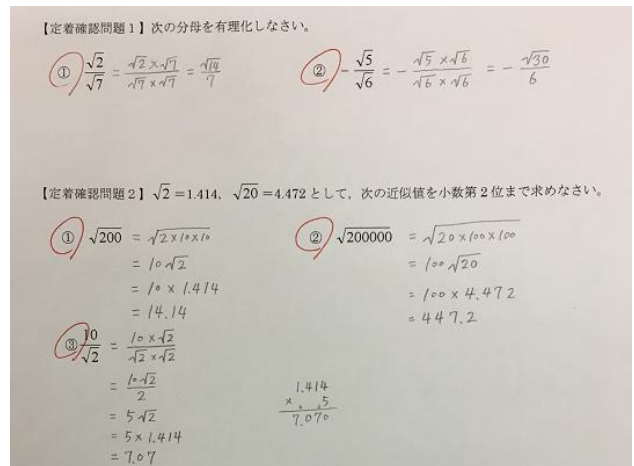 【定着確認問題1】次の分母を有理化しなさい。
① √2/√7 = √2×√7/√7×√7 = √14/7
② -√5/√6 = -√5×√6/√6×√6 = -√30/6
【定着確認問題2】√2=1.414, √20=4.472として, 次の近似値を小数第2位まで求めなさい。
① √200 = √2×10×10
= 10√2
= 10×1.414
= 14.14
② √200000 = √20×100×100
= 100√20
= 100×4.472
= 447.2
③ 10/√2 = 10×√2/√2×√2
= 10√2/2
= 5√2
= 5×1.414
= 7.07
1.414
× . .5
7.070